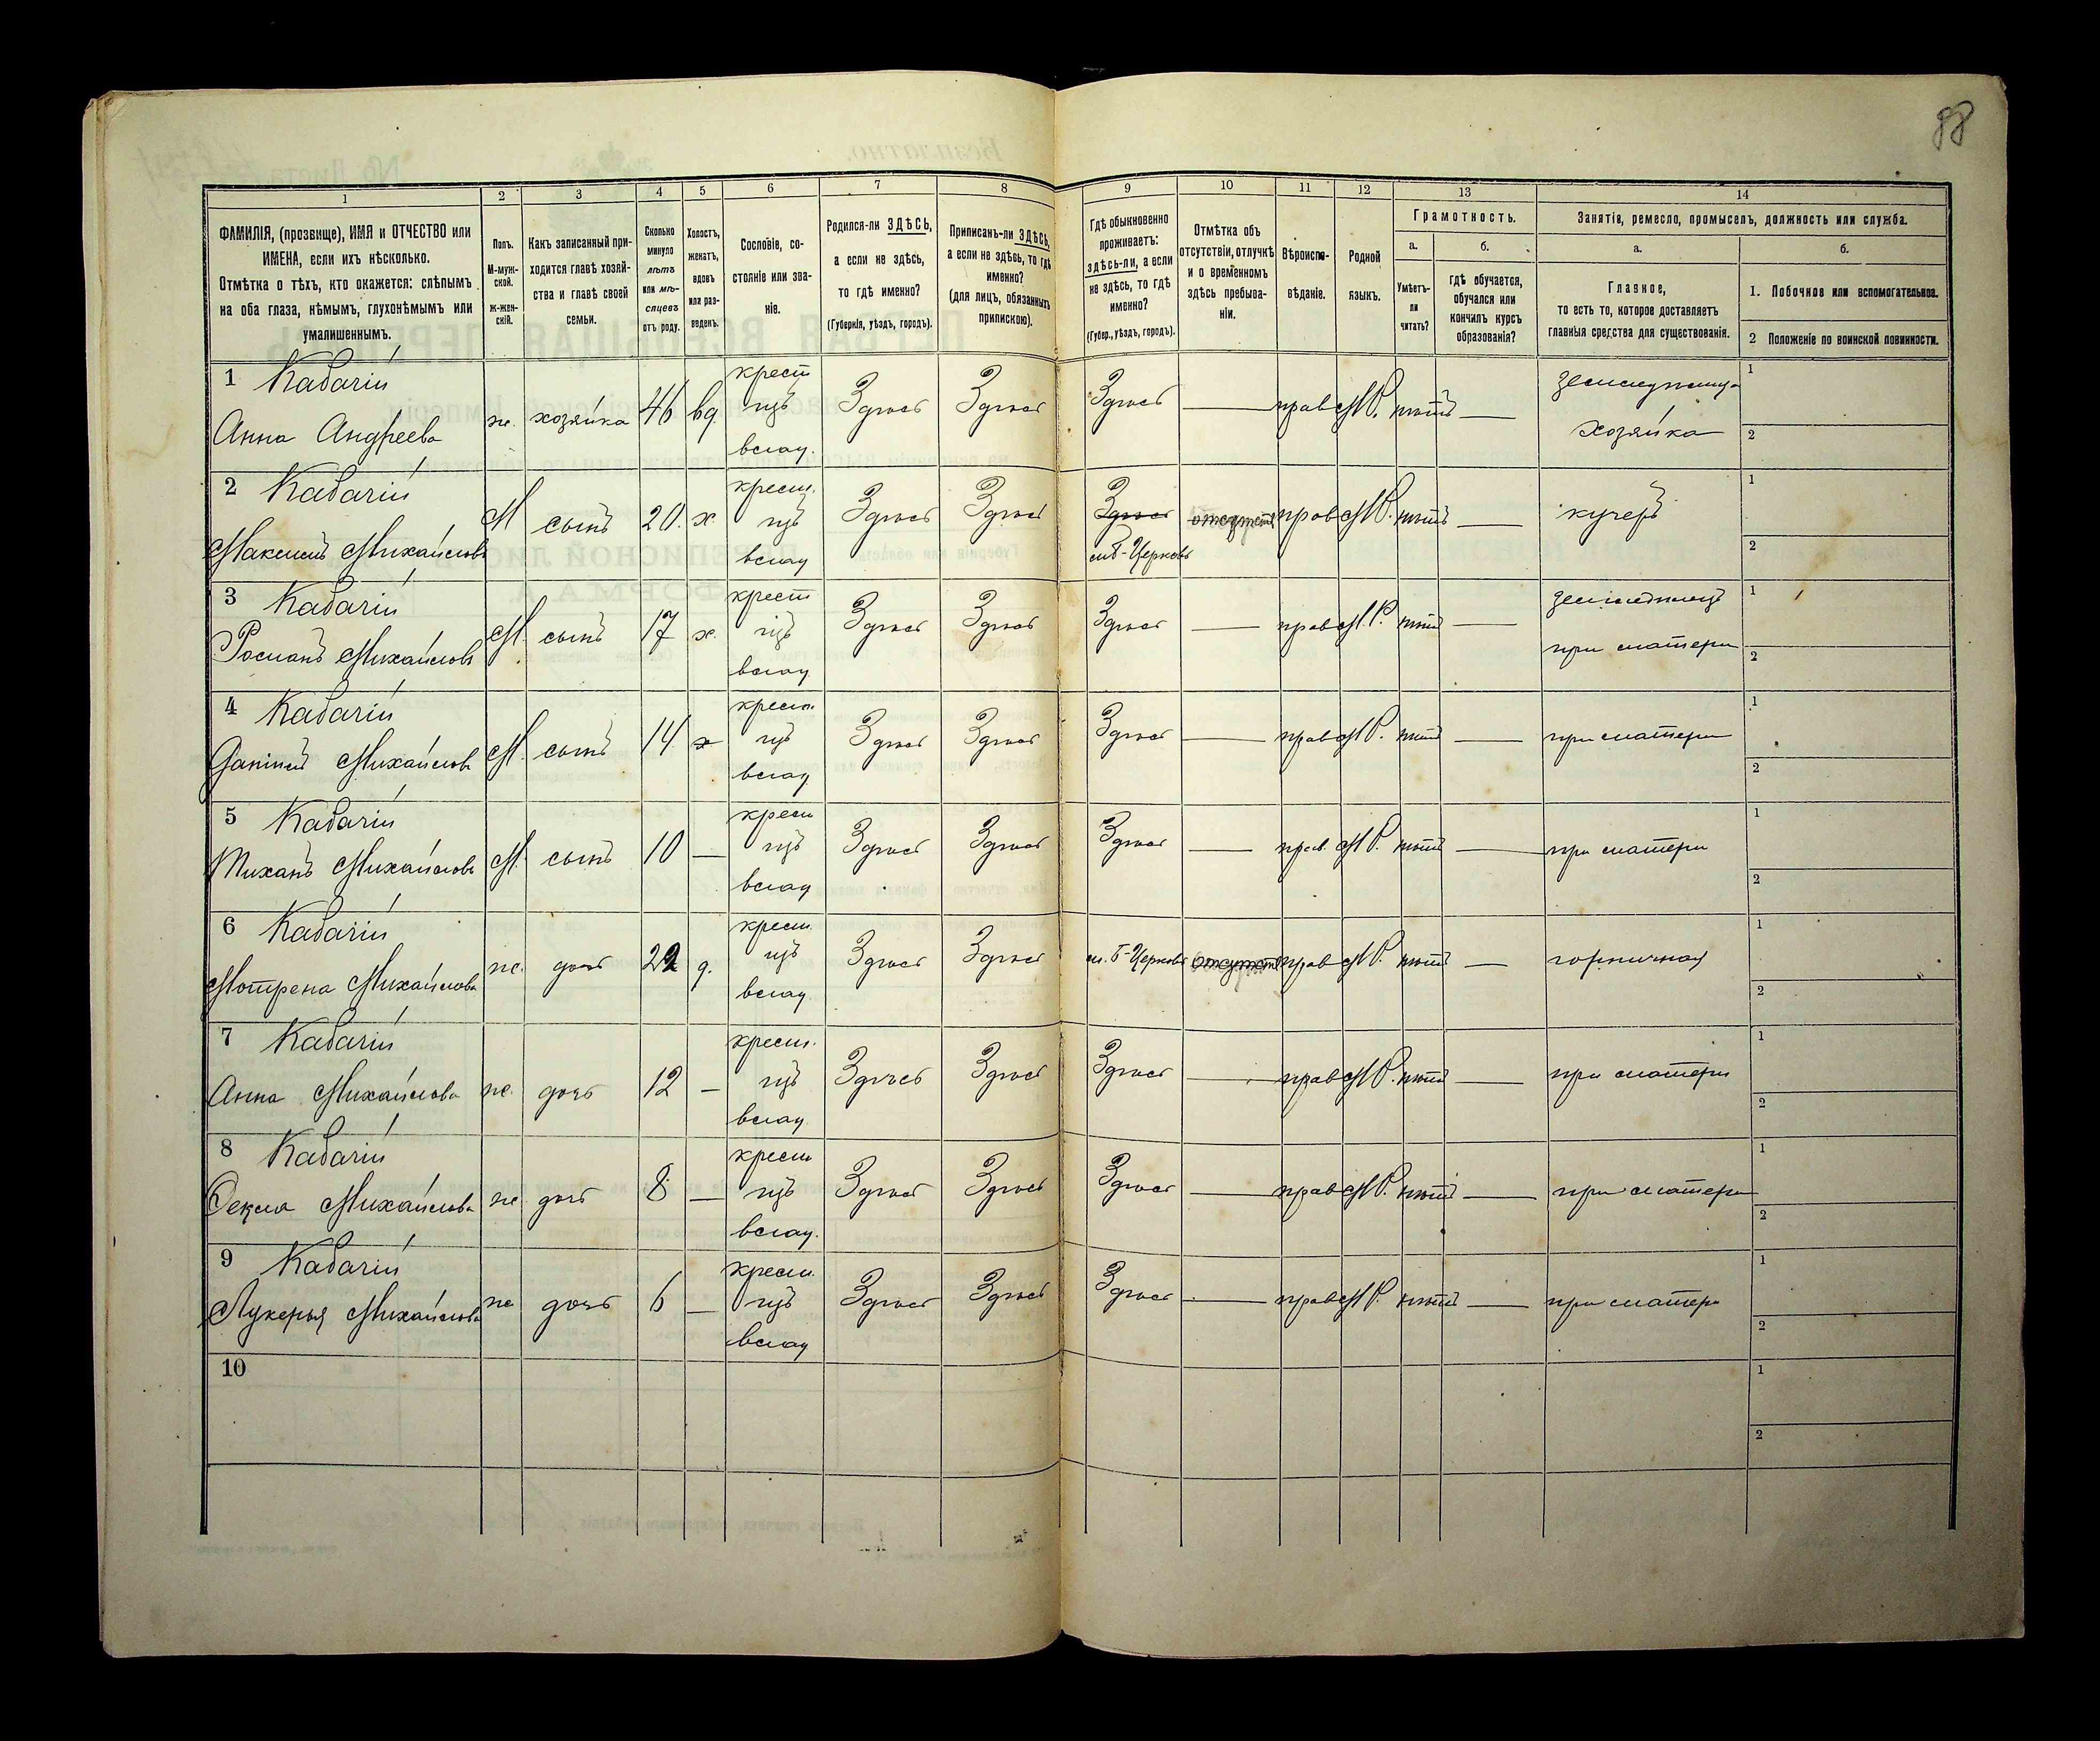 88
1 2 3 4 5 6 7 8 9 10 11 12 13 14
ФАМИЛІЯ, (прозвище), ИМЯ и ОТЧЕСТВО или
ИМЕНА, если ихъ нѣсколько.
Отмѣтка о тѣхъ, кто окажется: слѣпымъ
на оба глаза, нѣмымъ, глухонѣмымъ или
умалишеннымъ.
Полъ.
М-муж-
ской.
ж-жен-
скій.
Какъ записанный при-
ходится главѣ хозяй-
ства и главѣ своей
семьи.
Сколько
минуло
лѣтъ
или мѣ-
сяцевъ
отъ роду.
Холостъ,
женатъ,
вдовъ
или раз-
веденъ.
Сословіе, со-
стояніе или зва-
ніе.
Родился-ли ЗДѢСЬ,
а если не здѣсь,
то гдѣ именно?
(Губернія, уѣздъ, городъ).
Приписанъ-ли ЗДѢСЬ,
а если не здѣсь, то гдѣ
именно?
(для лицъ, обязанныхъ
припискою).
Гдѣ обыкновенно
проживаетъ:
здѣсь-ли, а если
не здѣсь, то гдѣ
именно?
(Губер., уѣздъ, городъ).
Отмѣтка объ
отсутствіи, отлучкѣ
и о временномъ
здѣсь пребыва-
ніи.
Вѣроиспо-
вѣданіе.
Родной
языкъ.
Грамотность.
а.
Умѣетъ-
ли
читать?
б.
гдѣ обучается,
обучался или
кончилъ курсъ
образованія?
Занятіе, ремесло, промыселъ, должность или служба.
а.
Главное,
то есть то, которое доставляетъ
главныя средства для существованія.
б.
1. Побочное или вспомогательное.
2 Положеніе по воинской повинности.
1 Кабачій
Анна Андреева
ж. хозяйка 46 вд. крест изъ влад. Здѣсь Здѣсь Здѣсь — прав М.Р. нѣтъ —
хозяйка
1
2
2 Кабачій
Максимъ Михайловъ
М сынъ 20. х. крест. изъ влад Здѣсь Здѣсь Здѣсь
м Б-Церковь
отсутств прав М.Р. нѣтъ — кучеръ
1
2
3 Кабачій
Романъ Михайловъ
М. сынъ 17 х. крест изъ влад Здѣсь Здѣсь Здѣсь — прав М.Р. нѣтъ — земледѣлецъ
при матери
1
2
4 Кабачій
Михайловъ
М. сынъ 14 х крест. изъ влад Здѣсь Здѣсь Здѣсь — прав М.Р. нѣтъ — при матери
1
2
5 Кабачій
Михайловъ
М. сынъ 10 — крест изъ влад Здѣсь Здѣсь Здѣсь — прав. М.Р. нѣтъ — при матери
1
2
6 Кабачій
Мотрена Михайлова
ж. дочь 22 д. крест. изъ влад Здѣсь Здѣсь м. Б-Церковь отсутств прав М.Р. нѣтъ — горничная
1
2
7 Кабачій
Анна Михайлова
ж. дочь 12 — крест. изъ влад Здѣсь Здѣсь Здѣсь — прав М.Р. нѣтъ — при матери
1
2
8 Кабачій
Фекла Михайлова
ж дочь 8 — крест изъ влад. Здѣсь Здѣсь Здѣсь — прав М.Р. нѣтъ — при матери
1
2
9 Кабачій
Лукерья Михайлова
ж дочь 6 — крест. изъ влад Здѣсь Здѣсь Здѣсь — прав М.Р. нѣтъ — при матери
1
2
10
1
2